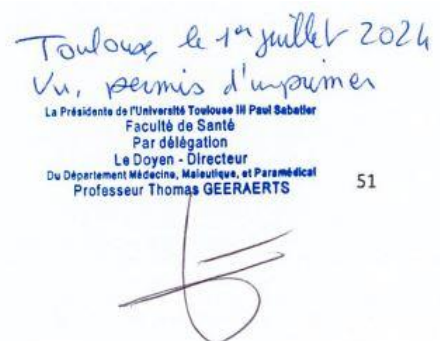 Toulouse, le 1er juillet 2024
Vu, permis d'imprimer
La Présidente de l'Université Toulouse III Paul Sabatier
Faculté de Santé
Par délégation
Le Doyen - Directeur
Du Département Médecine, Maïeutique, et Paramédical
Professeur Thomas GEERAERTS
51